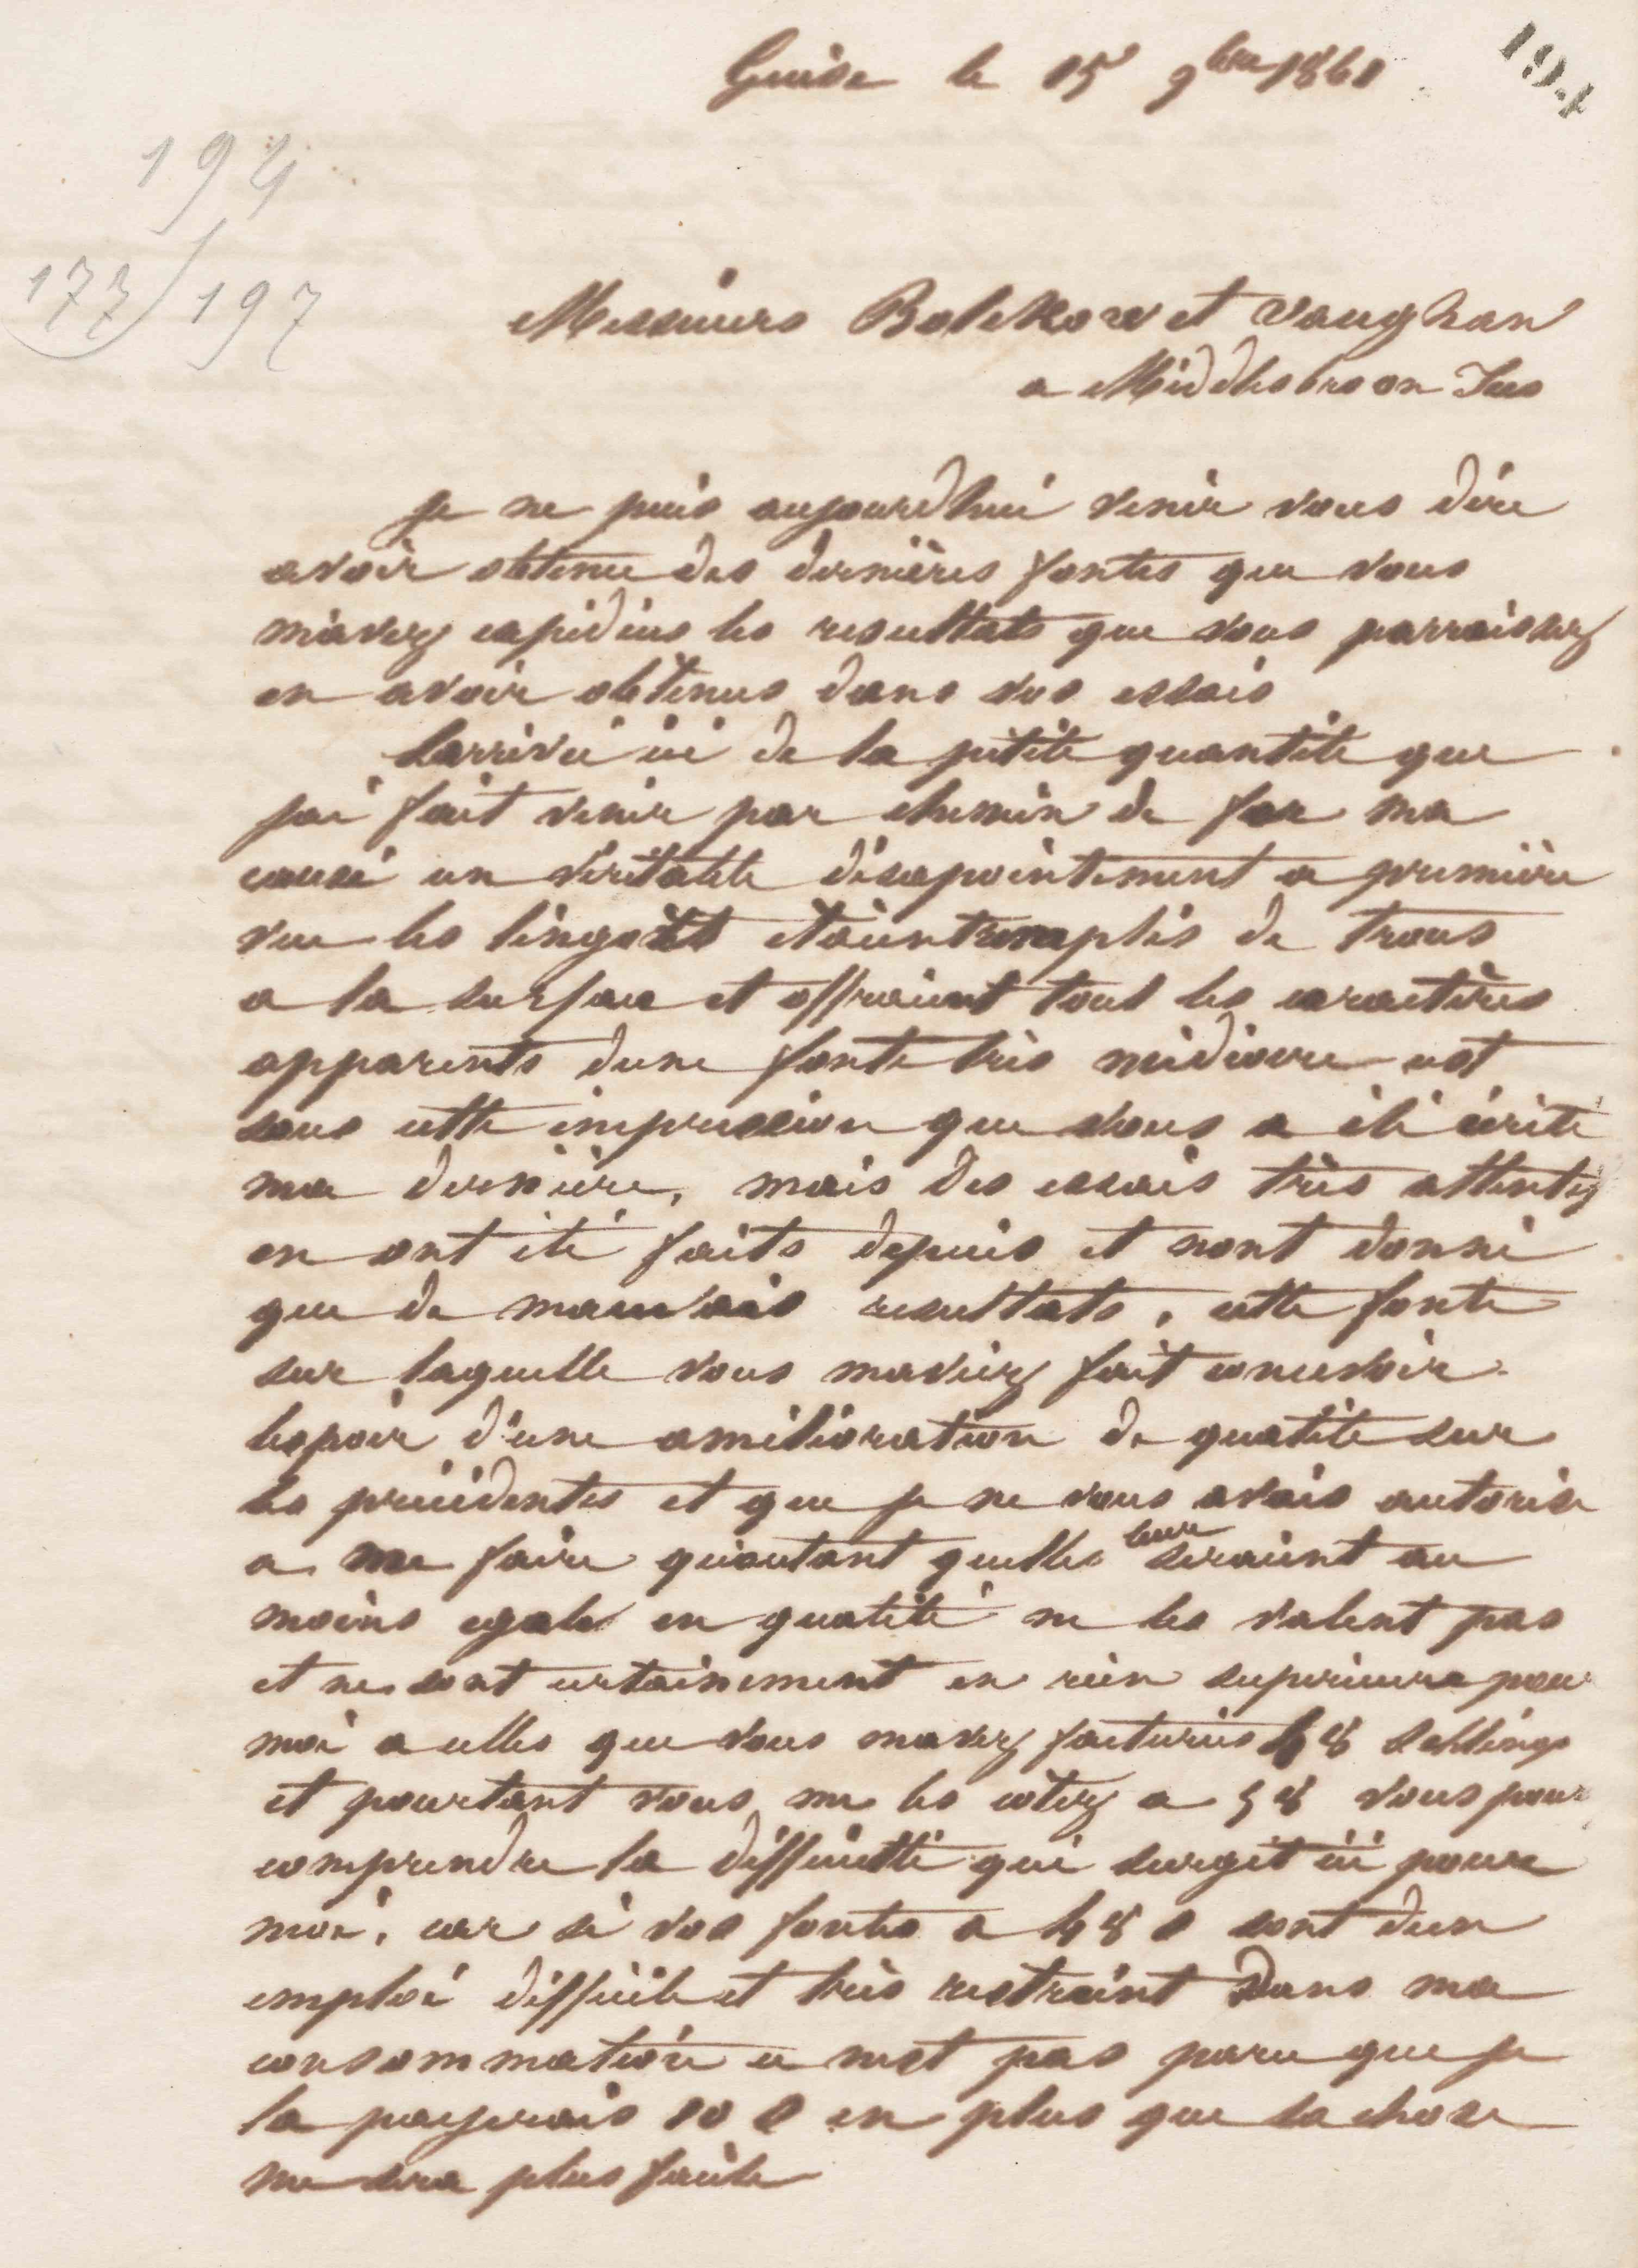 Guise le 15 9bre 1861
194
194
177/197
Messieurs Bolckow et Vaughan
a Middlesbro on Tees
je ne puis aujourdhui venir vous dire
avoir obtenu des dernières fontes que vous
m'avez expediees les resultats que vous parraissez
en avoir obtenus dans vos essais
Larrivée ici de la petite quantité que
jai fait venir par chemin de fer ma
causé un véritable désapointement a première
vue les lingots étaient remplis de trous
a la surface et offraient tout les caractères
apparents dune fonte très médiocre cest
sous cette impression que vous a été écrite
ma dernière, mais des essais très attentifs
en ont été faits depuis et nont donné
que de mauvais resultats, cette fonte
sur laquelle vous maviez fait concevoir
lespoir d'une amélioration de qualité sur
les précédentes et que je ne vous avais autorisé
a me faire qu'autant quelles leur seraient au
moins egales en qualité ne les valent pas
et ne sont certainement en rien superieures pour
moi a celles que vous mavez facturées 48 schlings
et pourtant vous me les cotez a 58 vous pouv
comprendre la difficulté qui surgit ici pour
moi, car si vos fontes a 48 s sont dun
emploi difficile et très restraint dans ma
consommation ce nest pas parce que je
la payerais 10 s en plus que la chose
me sera plus facile